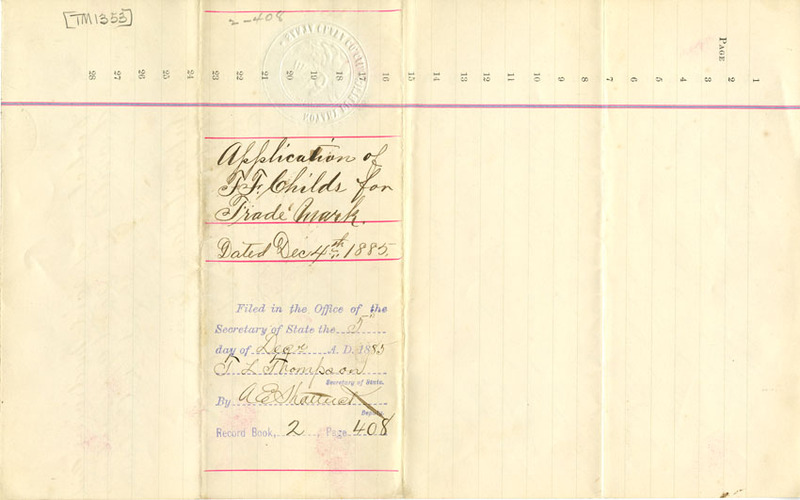 [TM1353]
2-408
PAGE
1
2
3
4
5
6
7
8
9
10
11
12
13
14
15
16
17
18
19
20
21
22
23
24
25
26
27
28
Application of
T. F. Childs for
Trade Mark.
Dated Dec 4th, 1885.
Filed in the Office of the
Secretary of State the 5
day of Decr A. D. 1885
T L Thompson
Secretary of State.
By A E Shattuck
Deputy.
Record Book, 2, Page 408